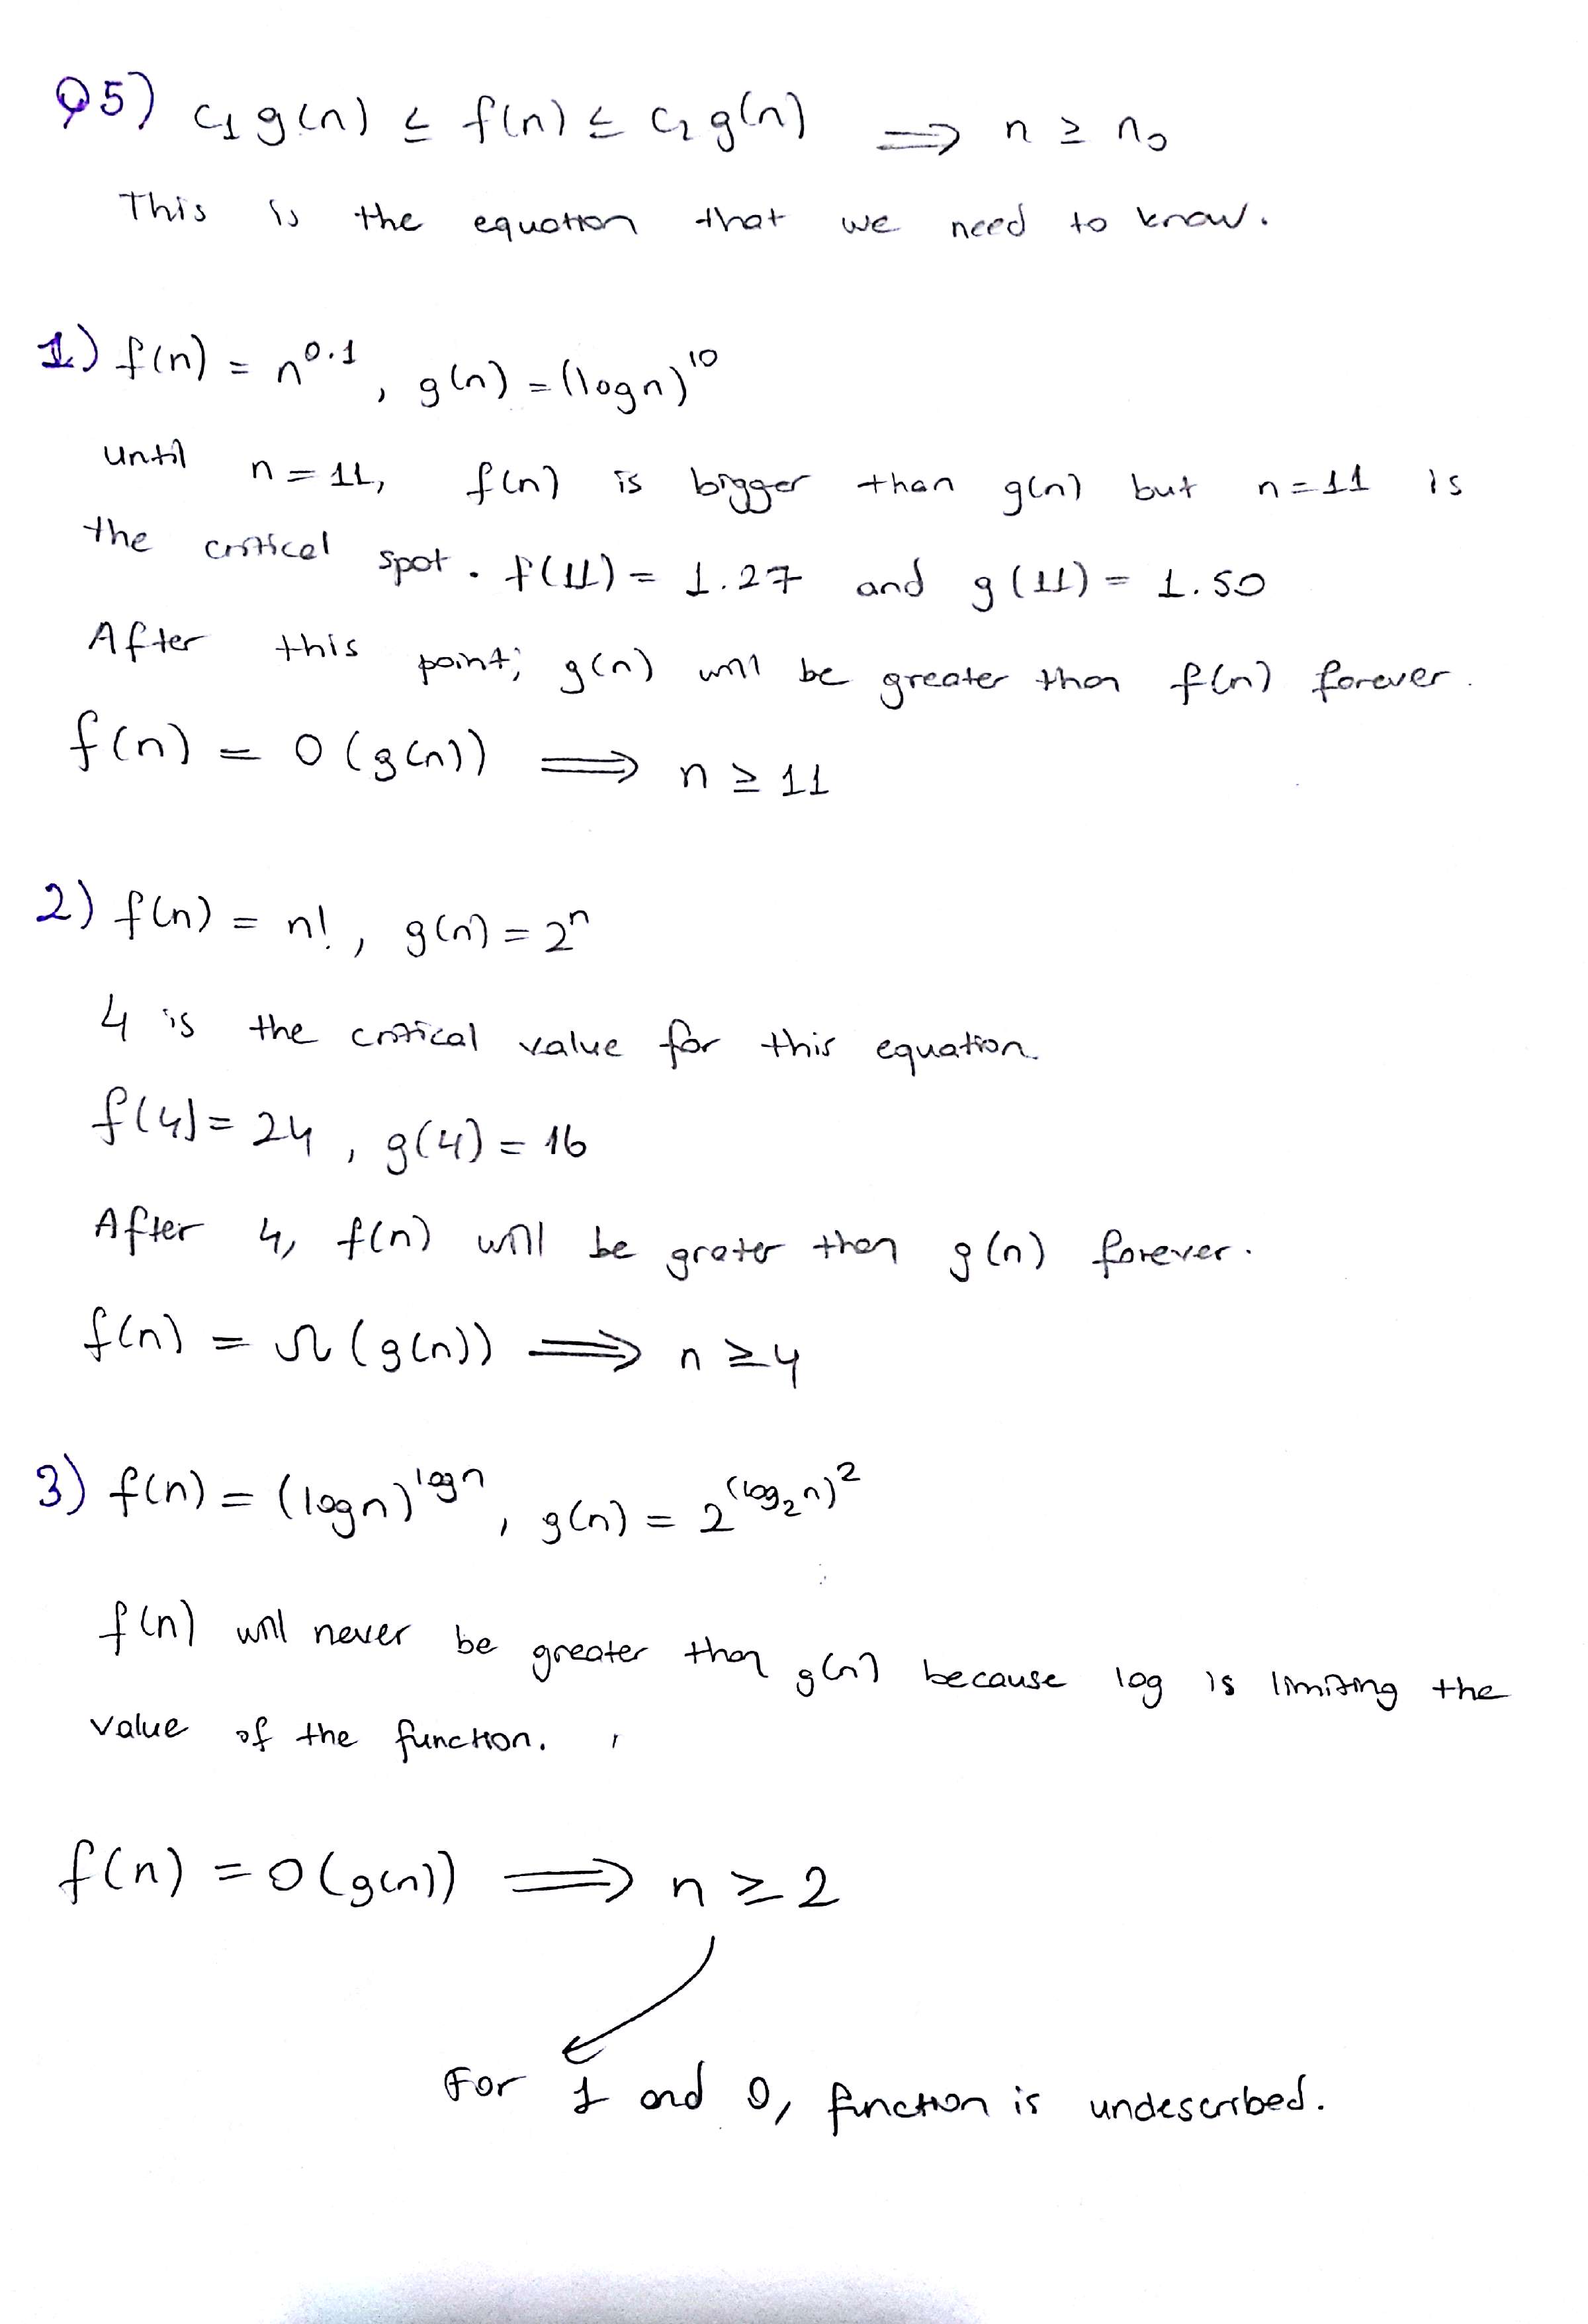 Q5) c₁g(n) ≤ f(n) ≤ c₂g(n) ⟹ n ≥ n₀
This is the equation that we need to know.
1) f(n) = n^0.1, g(n) = (logn)^10
until n = 11, f(n) is bigger than g(n) but n = 11 is
the critical spot. f(11) = 1.27 and g(11) = 1.50
After this point; g(n) will be greater than f(n) forever.
f(n) = O(g(n)) ⟹ n ≥ 11
2) f(n) = n!, g(n) = 2^n
4 is the critical value for this equation.
f(4) = 24, g(4) = 16
After 4, f(n) will be grater then g(n) forever.
f(n) = Ω(g(n)) ⟹ n ≥ 4
3) f(n) = (logn)^logn, g(n) = 2^(log₂n)^2
f(n) will never be greater than g(n) because log is limiting the
value of the function.
f(n) = O(g(n)) ⟹ n ≥ 2
For 1 and 0, function is undescribed.